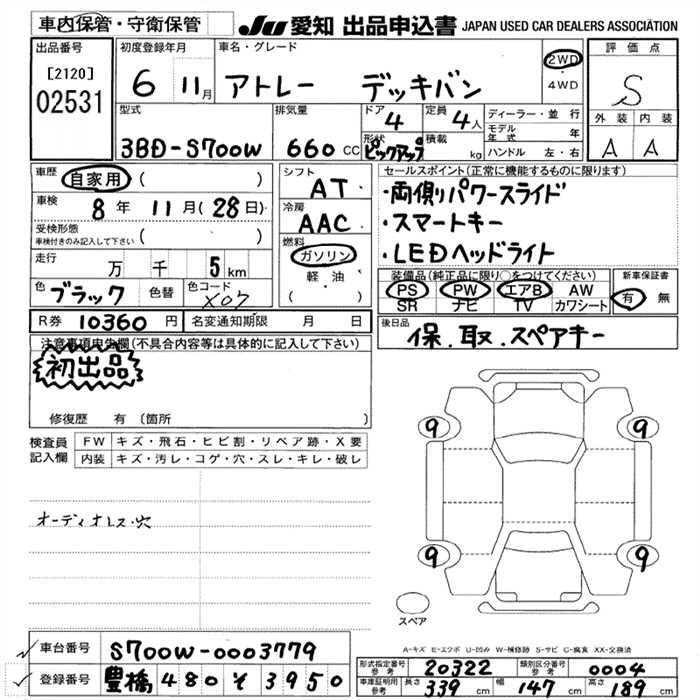 車内保管・守衛保管
JU 愛知 出品申込書 JAPAN USED CAR DEALERS ASSOCIATION
出品番号
[2120]
02531
初度登録年月
6 11月
車名・グレード
アトレー デッキバン
2WD
・
4WD
評価点
S
外装 内装
A A
型式
3BD-S700W
排気量
660 CC
ドア
4
定員
4人
形状
ピックアップ
積載
kg
ディーラー・並行
モデル年式 年
ハンドル 左・右
車歴
自家用 ( )
車検
8年 11月(28日)
受検形態
車検付きのみ記入して下さい ( )
走行
万 千 5km
色 ブラック 色替
色コード
X07
シフト
AT
冷房
AAC
燃料
ガソリン
軽・油
( )
セールスポイント(正常に機能するものに限ります)
・両側パワースライド
・スマートキー
・LEDヘッドライト
装備品(純正品に限り○をつけてください)
PS PW エアB AW
SR ナビ TV カワシート
新車保証書
有 無
R券 10360円 名変通知期限 月 日
後日品
保.取.スペアキー
注意事項申告欄(不具合内容等は具体的に記入して下さい)
初出品
修復歴 有 (箇所 )
検査員記入欄
FW キズ・飛石・ヒビ割・リペア跡・X要
内装 キズ・汚レ・コゲ・穴・スレ・キレ・破レ
オーディオレス・穴
9 9
9 9
スペア
A-キズ E-エクボ U-凹み W-補修跡 S-サビ C-腐食 XX-交換済
車台番号 S700W-0003779
登録番号 豊橋 480 そ 3950
形式指定番号
参考
20322
類別区分番号
参考
0004
車庫証明用
参考
長さ 339cm 幅 147cm 高さ 189cm